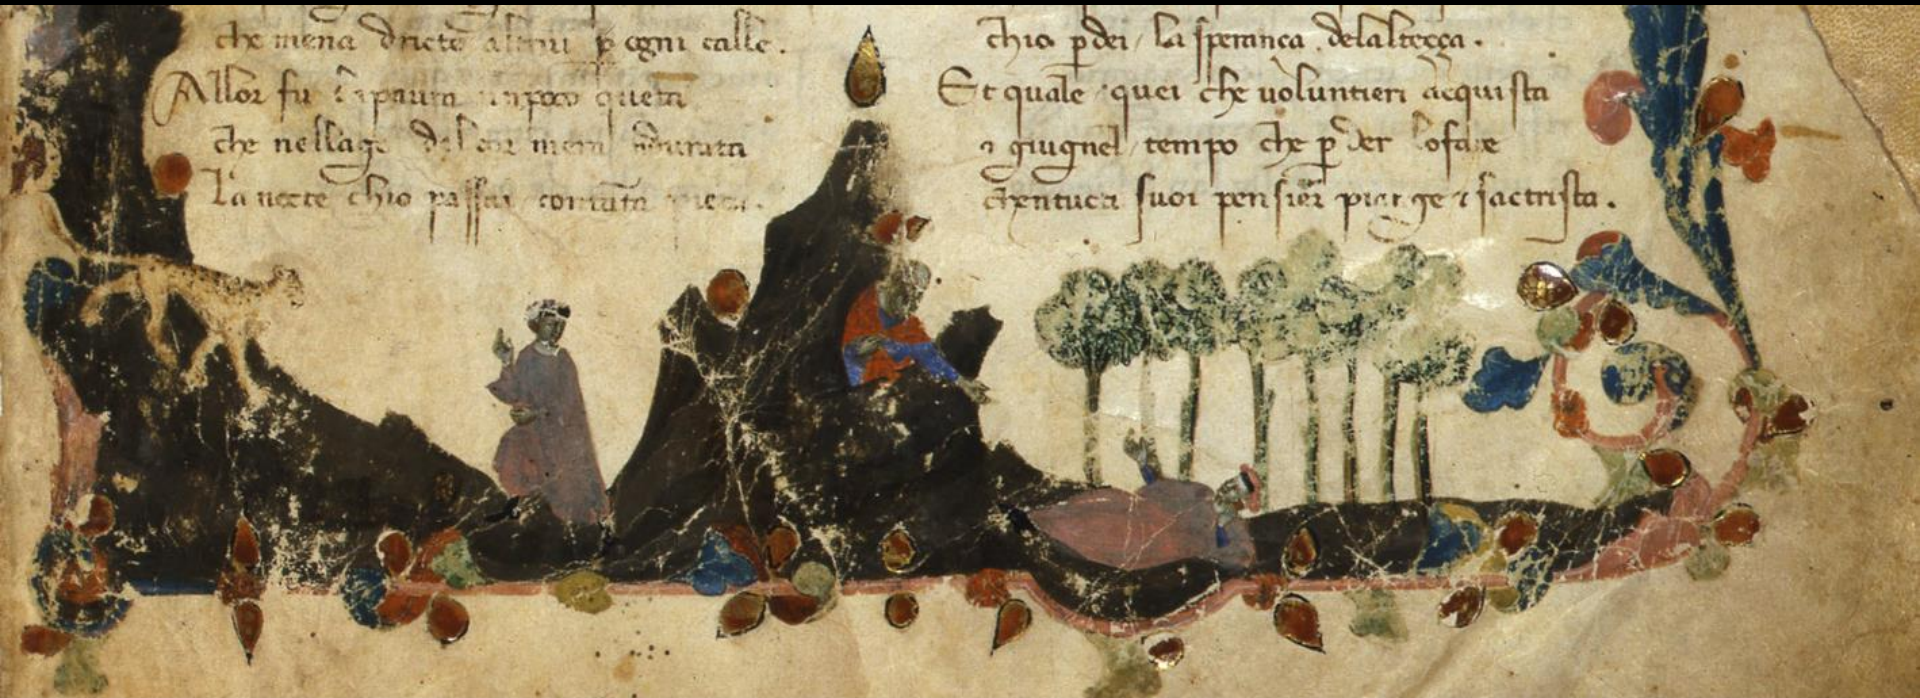 che mena dricto altrui p ogni calle.
Allor fu la paura un poco queta
che nellago del cor mera durata
La nocte chio passai contāta pieta.
chio pdei la speranca delaltecça.
Et quale quei che uoluntieri acquista
⁊ giugnel tempo che pder lo face
chentucti suoi pensier piange ⁊ sactrista.